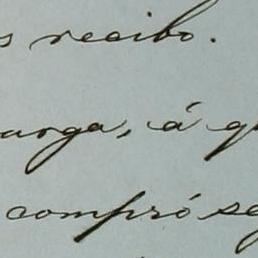 s recibo.
urga, á q
compró se